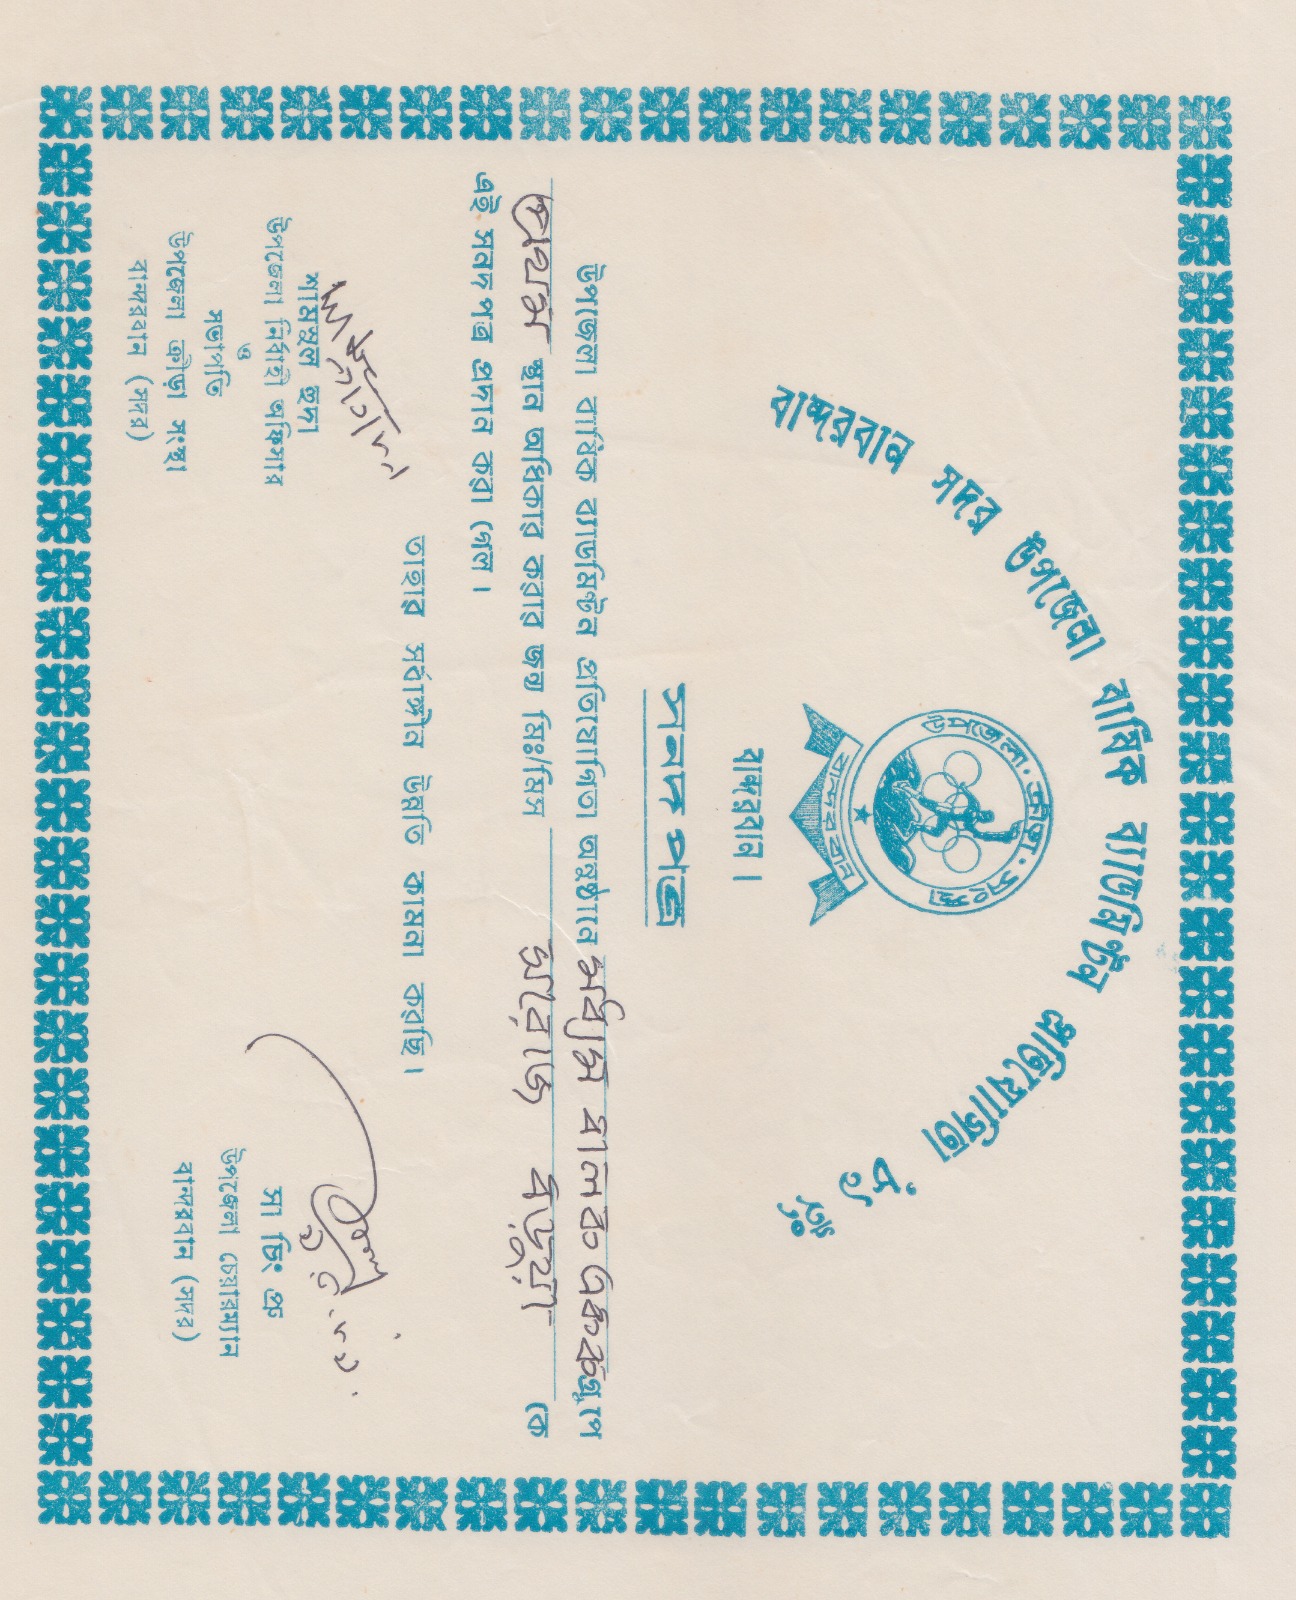 বান্দরবান সদর উপজেলা বার্ষিক ব্যাডমিন্টন প্রতিযোগিতা '৮৯ ইং
উপজেলা · ক্রীড়া · সংস্থা
বান্দরবান
বান্দরবান ।
সনদ পত্র
উপজেলা বার্ষিক ব্যাডমিন্টন প্রতিযোগিতা অনুষ্ঠানে মধ্যম বালক একক গ্রুপে
প্রথম স্থান অধিকার করার জন্য মিঃ/মিস সরোজ বড়ুয়া কে
এই সনদ পত্র প্রদান করা গেল ।
তাহার সর্বাঙ্গীন উন্নতি কামনা করছি ।
শামসুল হুদা
উপজেলা নির্বাহী অফিসার
ও
সভাপতি
উপজেলা ক্রীড়া সংস্থা
বান্দরবান (সদর)
সা চিং প্রু
উপজেলা চেয়ারম্যান
বান্দরবান (সদর)